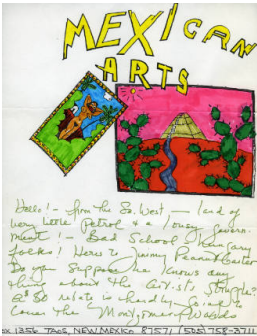 MEXICAN
ARTS
Hello! - from the So. West - land of
very little petrol & a lousy govern-
ment! - Bad School
folks! Here's Jimmy Peanut Carter
Do you Suppose he knows any
thing about the artists struggle?
to
the Montgomery Wards
ox 1356 TAOS, NEW MEXICO 87571 (505) 758-2711